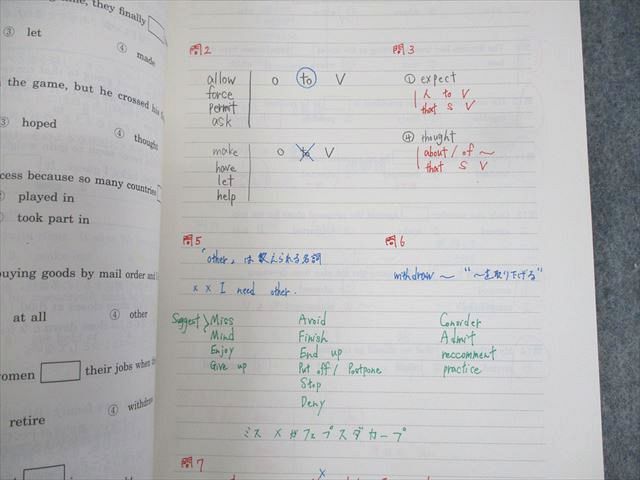 they finally
③ let
④ made
the game, but he crossed his
③ hoped
④ thought
because so many countries
played in
took part in
buying goods by mail order and
at all
④ other
women
their jobs when
retire
④ withdraw
問2
allow O to V
force
permit
ask
make O to V
have
let
help
問3
① expect
人 to V
that S V
④ thought
about / of ～
that S V
問5
「other」は数えられる名詞
×× I need other.
問6
withdraw ～ “～を取り下げる”
Suggest Miss Avoid Consider
Mind Finish Admit
Enjoy End up reccomment
Give up Put off / Postpone practice
Stop
Deny
ミスメガフェプスダカープ
問7